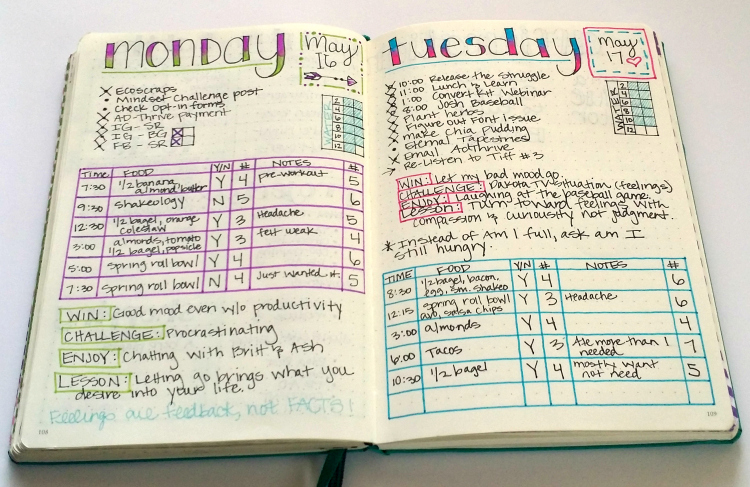 monday
May
16
X Ecoscraps
• Mindset Challenge post
• Check opt-in forms
X AD-Thrive payment
X IG - SR
X IG - BG
X FB - SR
WATER
2
4
6
8
10
12
TIME FOOD Y/N # NOTES #
7:30 1/2 banana almond butter Y 4 pre-workout 5
9:30 Shakeology N 5 6
12:30 1/2 bagel, orange coleslaw Y 3 Headache 5
3:00 almonds, tomato 1/2 bagel, popsicle Y 3 felt weak 4
5:00 Spring roll bowl Y 4 6
7:30 Spring roll bowl N 4 Just wanted it. 5
WIN: Good mood even w/o productivity
CHALLENGE: Procrastinating
ENJOY: Chatting with Britt & Ash
LESSON: Letting go brings what you
desire into your life.
Feelings are feedback, not FACTS!
108
tuesday
May
17
X 10:00 Release the Struggle
X 11:00 Lunch & Learn
X 1:00 Convert Kit Webinar
X 8:00 Josh Baseball
X Plant herbs
X Figure out Font Issue
X make Chia pudding
• Eternal Tapestries
X Email AdThrive
> Re-Listen to Tiff #3
WATER
2
4
6
8
10
12
WIN: Let my bad mood go.
CHALLENGE: Dakota TV situation (feelings)
ENJOY: Laughing at the baseball game.
LESSON: Turn toward feelings with
compassion & curiousity not judgment.
* Instead of Am I full, ask am I
still hungry.
TIME FOOD Y/N # NOTES #
8:30 1/2 bagel, bacon, egg, sm. shakeo Y 4 6
12:15 spring roll bowl avo, salsa chips Y 3 Headache 6
3:00 almonds Y 4 4
6:00 Tacos Y 3 Ate more than I needed 7
10:30 1/2 bagel Y 4 mostly want not need 5
109